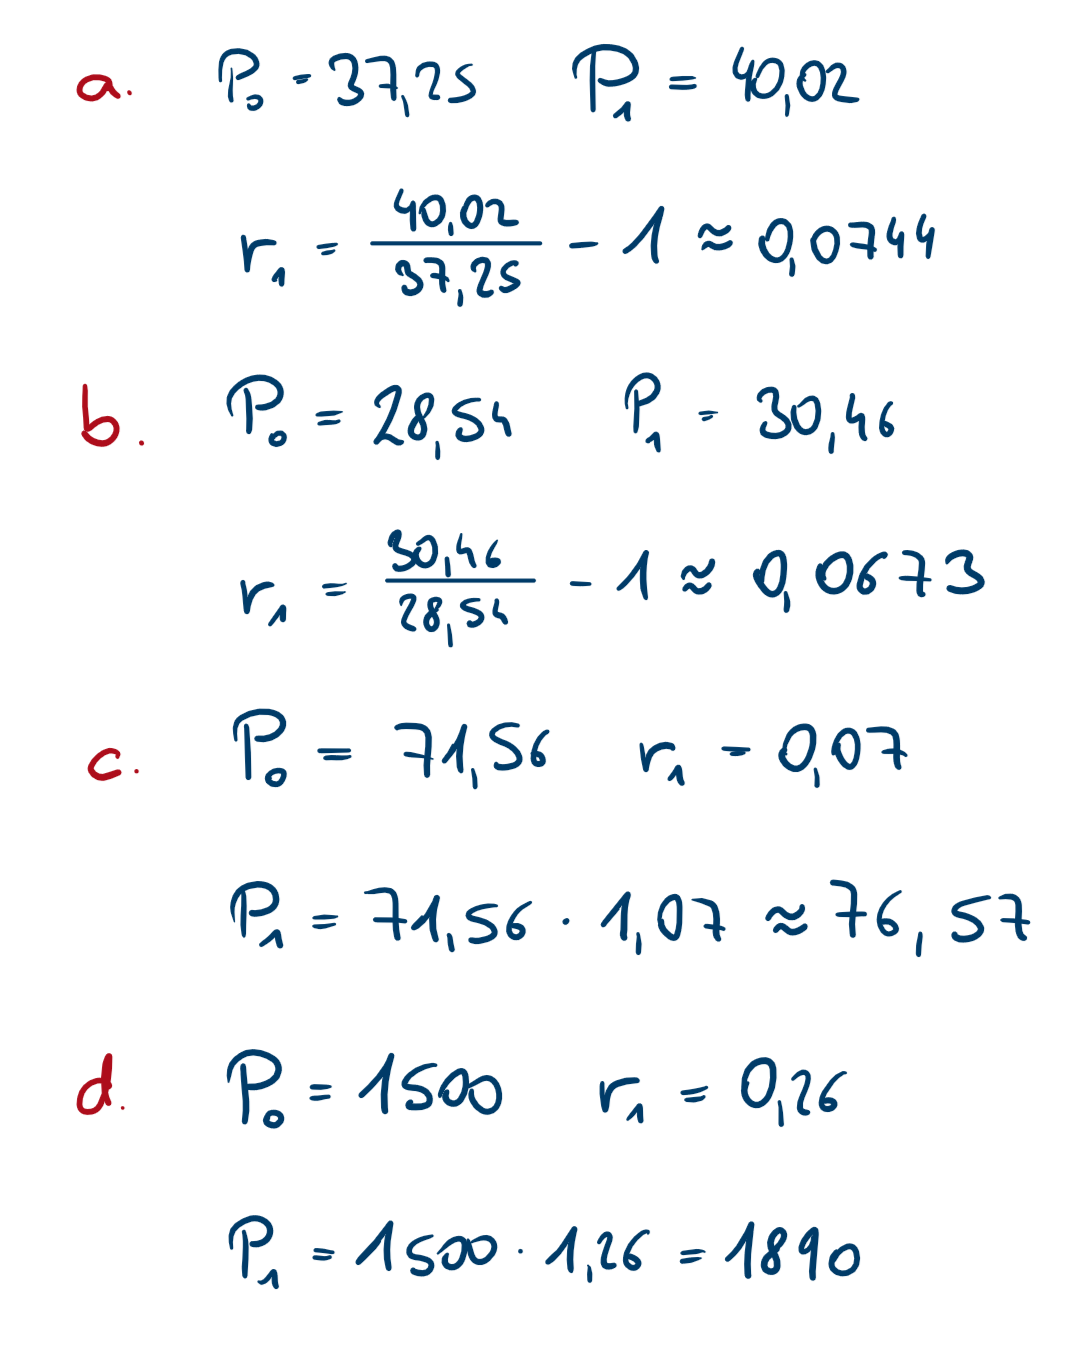 a. P₀ = 37,25 P₁ = 40,02
r₁ = 40,02/37,25 - 1 ≈ 0,0744
b. P₀ = 28,54 P₁ = 30,46
r₁ = 30,46/28,54 - 1 ≈ 0,0673
c. P₀ = 71,56 r₁ = 0,07
P₁ = 71,56 · 1,07 ≈ 76,57
d. P₀ = 1500 r₁ = 0,26
P₁ = 1500 · 1,26 = 1890